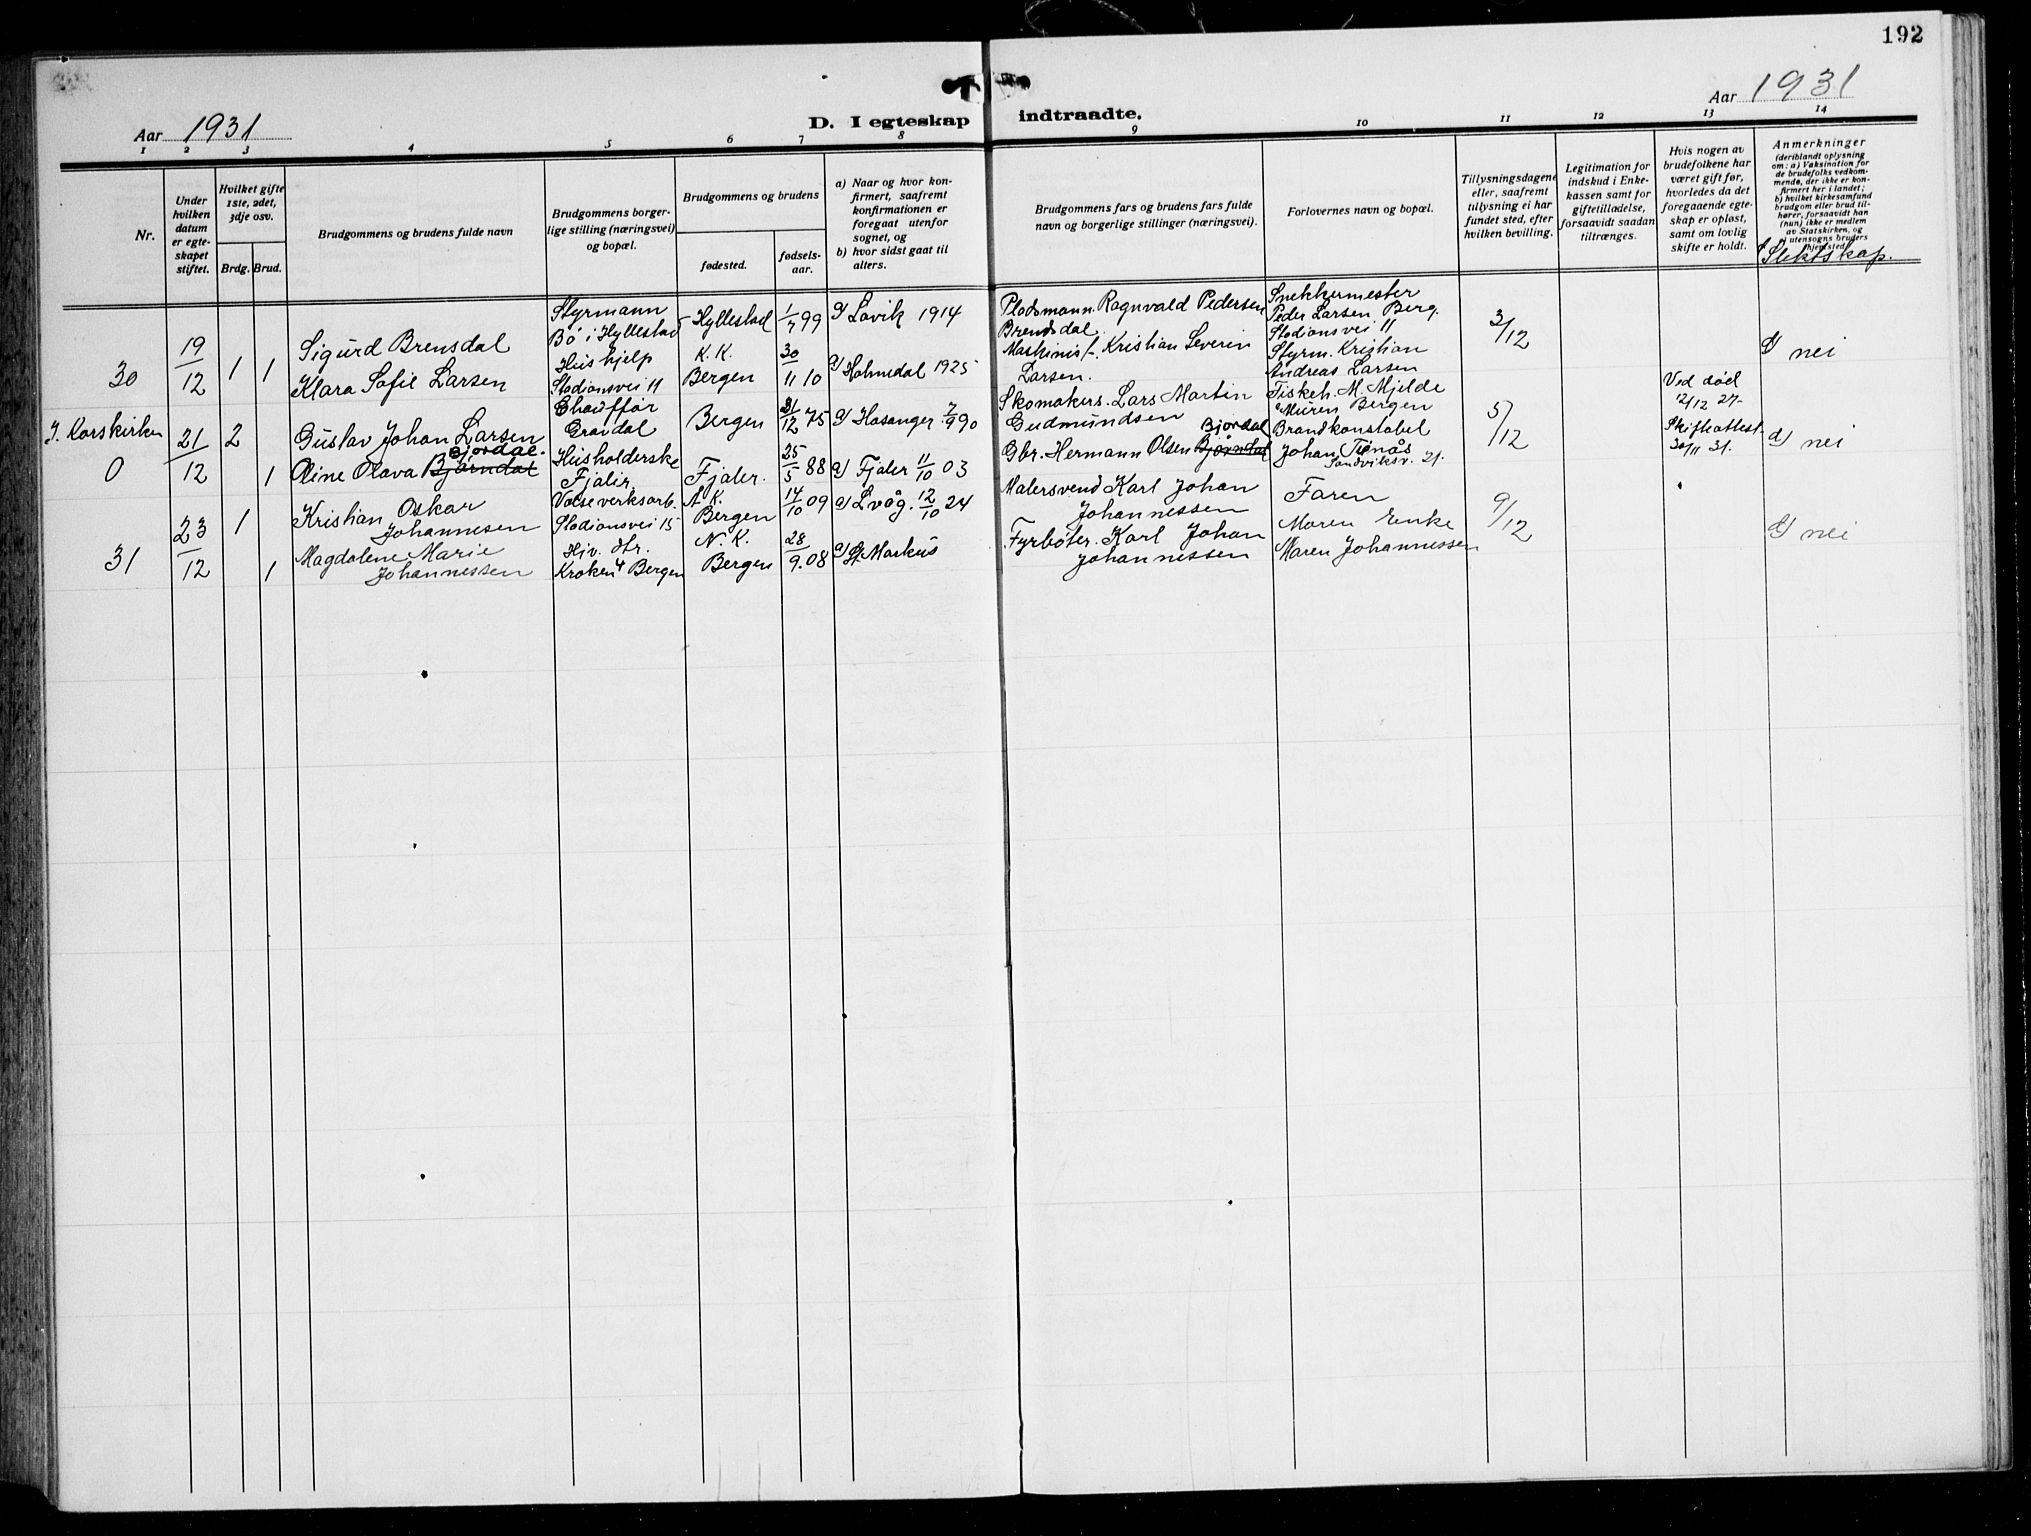 192
Aar 1931
D. I egteskap indtraadte.
Aar 1931
1 2 3 4 5 6 7 8 9 10 11 12 13 14
Nr.
Under hvilken datum er egteskapet stiftet.
Hvilket gifte 1ste, 2det, 3dje osv.
Brdg. Brud.
Brudgommens og brudens fulde navn
Brudgommens borgerlige stilling (næringsvei) og bopæl.
Brudgommens og brudens
fødested.
fødselsaar.
a) Naar og hvor konfirmert, saafremt konfirmationen er foregaat utenfor sognet, og
b) hvor sidst gaat til alters.
Brudgommens fars og brudens fars fulde navn og borgerlige stillinger (næringsvei).
Forlovernes navn og bopæl.
Tillysningsdagene eller, saafremt tillysning ei har fundet sted, efter hvilken bevilling.
Legitimation for indskud i Enkekassen samt for giftetilladelse, forsaavidt saadan tiltrænges.
Hvis nogen av brudefolkene har været gift før, hvorledes da det foregaaende egteskap er opløst, samt om lovlig skifte er holdt.
Anmerkninger
(deriblandt oplysning om: a) Vaksination for de brudefolks vedkommende, der ikke er konfirmert her i landet; b) hvilket kirkesamfund brudgom eller brud tilhører, forsaavidt han (hun) ikke er medlem av Statskirken, og
utensogns bruders hjemsted
Slektskap.
30
19/12
1 1
Sigurd Brensdal
Klara Sofie Larsen
Styrmann
Bö i Hyllestad
Hushjelp
Stadionsvei 11
Hyllestad
K. K.
Bergen
1/7 99
30/11 10
a) Lavik 1914
a) Holmedal 1925
Pladsmann Ragnvald Pedersen
Brendsdal
Maskinist. Kristian Severin
Larsen.
Snekkermester
Peder Larsen Berg.
Stadionsvei 11
Styrm. Kristian
Andreas Larsen
3/12
nei
J. Korskirken
0
21/12
2
1
Gustav Johan Larsen
Bjordal.
Oline Olava Bjørndal
Chauffør
Gravdal
Husholderske
Fjaler
Bergen
Fjaler.
31/12 75
25/5 88
a) Hosanger 7/9 90
a) Fjaler 11/10 03
Skomakers. Lars Martin
Gudmundsen
Bjordal
Gbr. Hermann Olsen Bjørndal
Fiskeh. M. Mjelde
Muren Bergen
Brandkonstabel
Johan Tenås
Sandviksv. 21.
5/12
Ved död
12/12 27-
Skifteattest
30/11 31.
a) nei
31
23/12
1
1
Kristian Oskar
Johannesen
Magdalene Marie
Johannessen
Valseverksarb.
Stadionsvei 15
Hjv. dtr.
Kroken 4 Bergen
A. K.
Bergen
N. K.
Bergen
14/10 09
28/9. 08
a) Lvåg. 12/10 24
a) St Markus
Malersvend Karl Johan
Johannessen
Fyrbøter. Karl Johan
Johannessen
Faren
Maren Enke
Maren Johannessen
9/12
nei